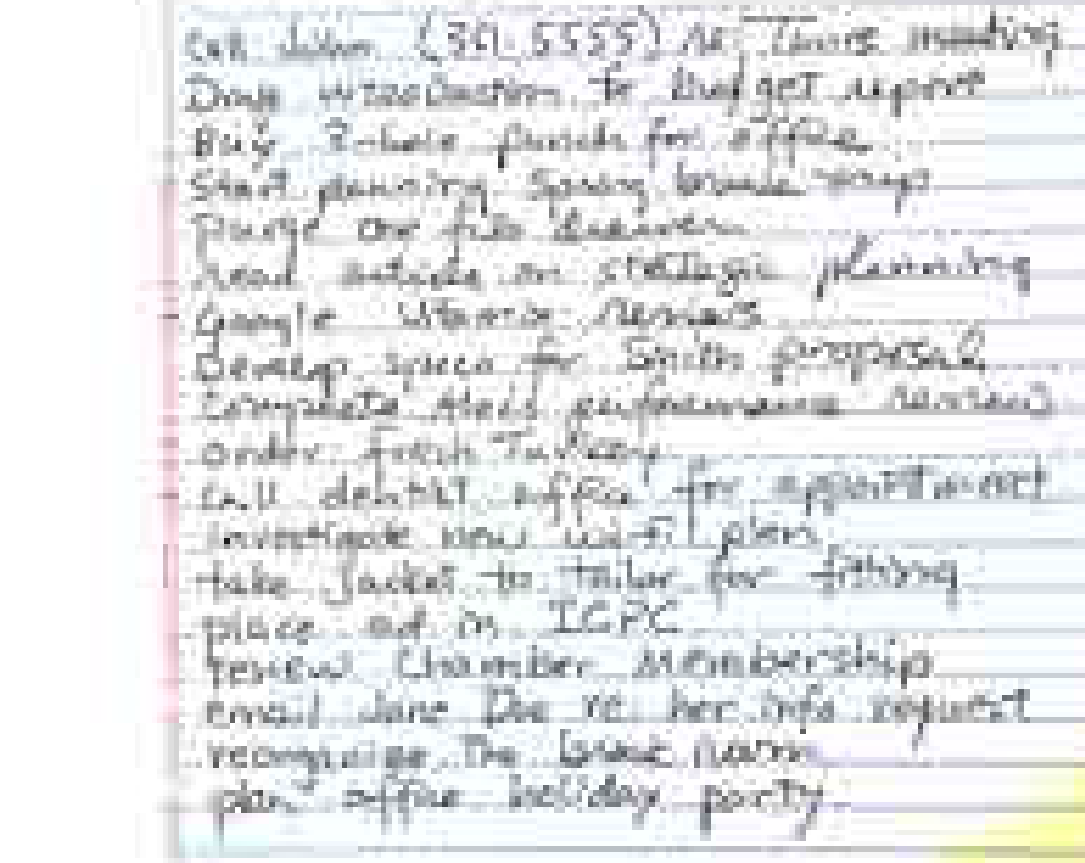 Call John (361.5555) re: meeting
introduction to budget report
Buy 3-hole punch for office
Start planning Spring break trip
Purge one file drawer
read article on strategic planning
Google Vitamix reviews
Develop specs for Smith proposal
Complete staff performance reviews
order fresh Turkey
call dentist office for appointment
investigate new wi-fi plan
take jacket to tailor for fitting
place ad in ICPC
renew Chamber membership
email Jane Doe re: her info request
reorganize the break room
plan office holiday party